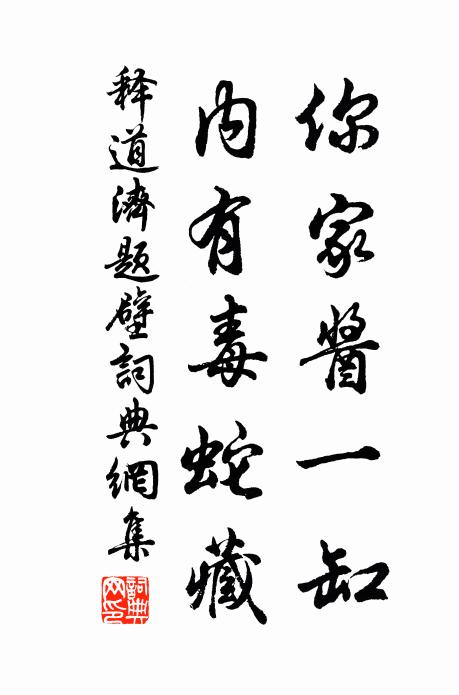 你家醬一缸
内有毒蛇藏
释道濟題壁詞典網集
詞典
网印